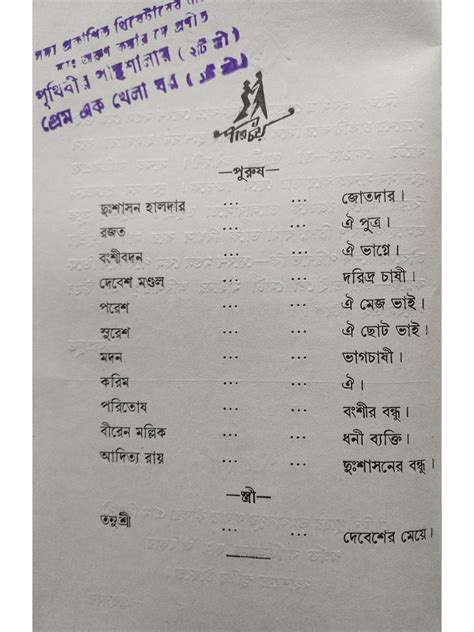 সদ্য প্রকাশিত থিয়েটারের
প্রণীত
পৃথিবীর পান্থশালায় (২টি স্ত্রী)
প্রেম এক খেলা ঘর (১টি স্ত্রী)
পরিচয়
—পুরুষ—
দুঃশাসন হালদার ... ... জোতদার।
রজত ... ... ঐ পুত্র।
বংশীবদন ... ... ঐ ভাগ্নে।
দেবেশ মণ্ডল ... ... দরিদ্র চাষী।
পরেশ ... ... ঐ মেজ ভাই।
সুরেশ ... ... ঐ ছোট ভাই।
মদন ... ... ভাগচাষী।
করিম ... ... ঐ।
পরিতোষ ... ... বংশীর বন্ধু।
বীরেন মল্লিক ... ... ধনী ব্যক্তি।
আদিত্য রায় ... ... দুঃশাসনের বন্ধু।
—স্ত্রী—
তনুশ্রী ... ... দেবেশের মেয়ে।